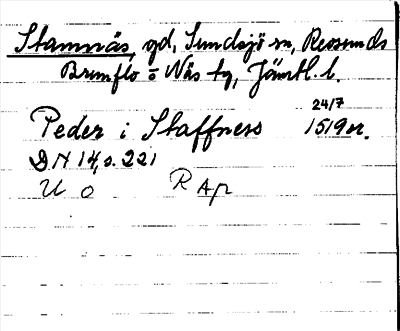 Stamnäs, gd, Sundsjö sn, Revsunds
Brunflo o Näs tg, Jämtl. l.
24/7
Peder i Staffness 1519 or.
DN 14, s. 221
U o R Ap